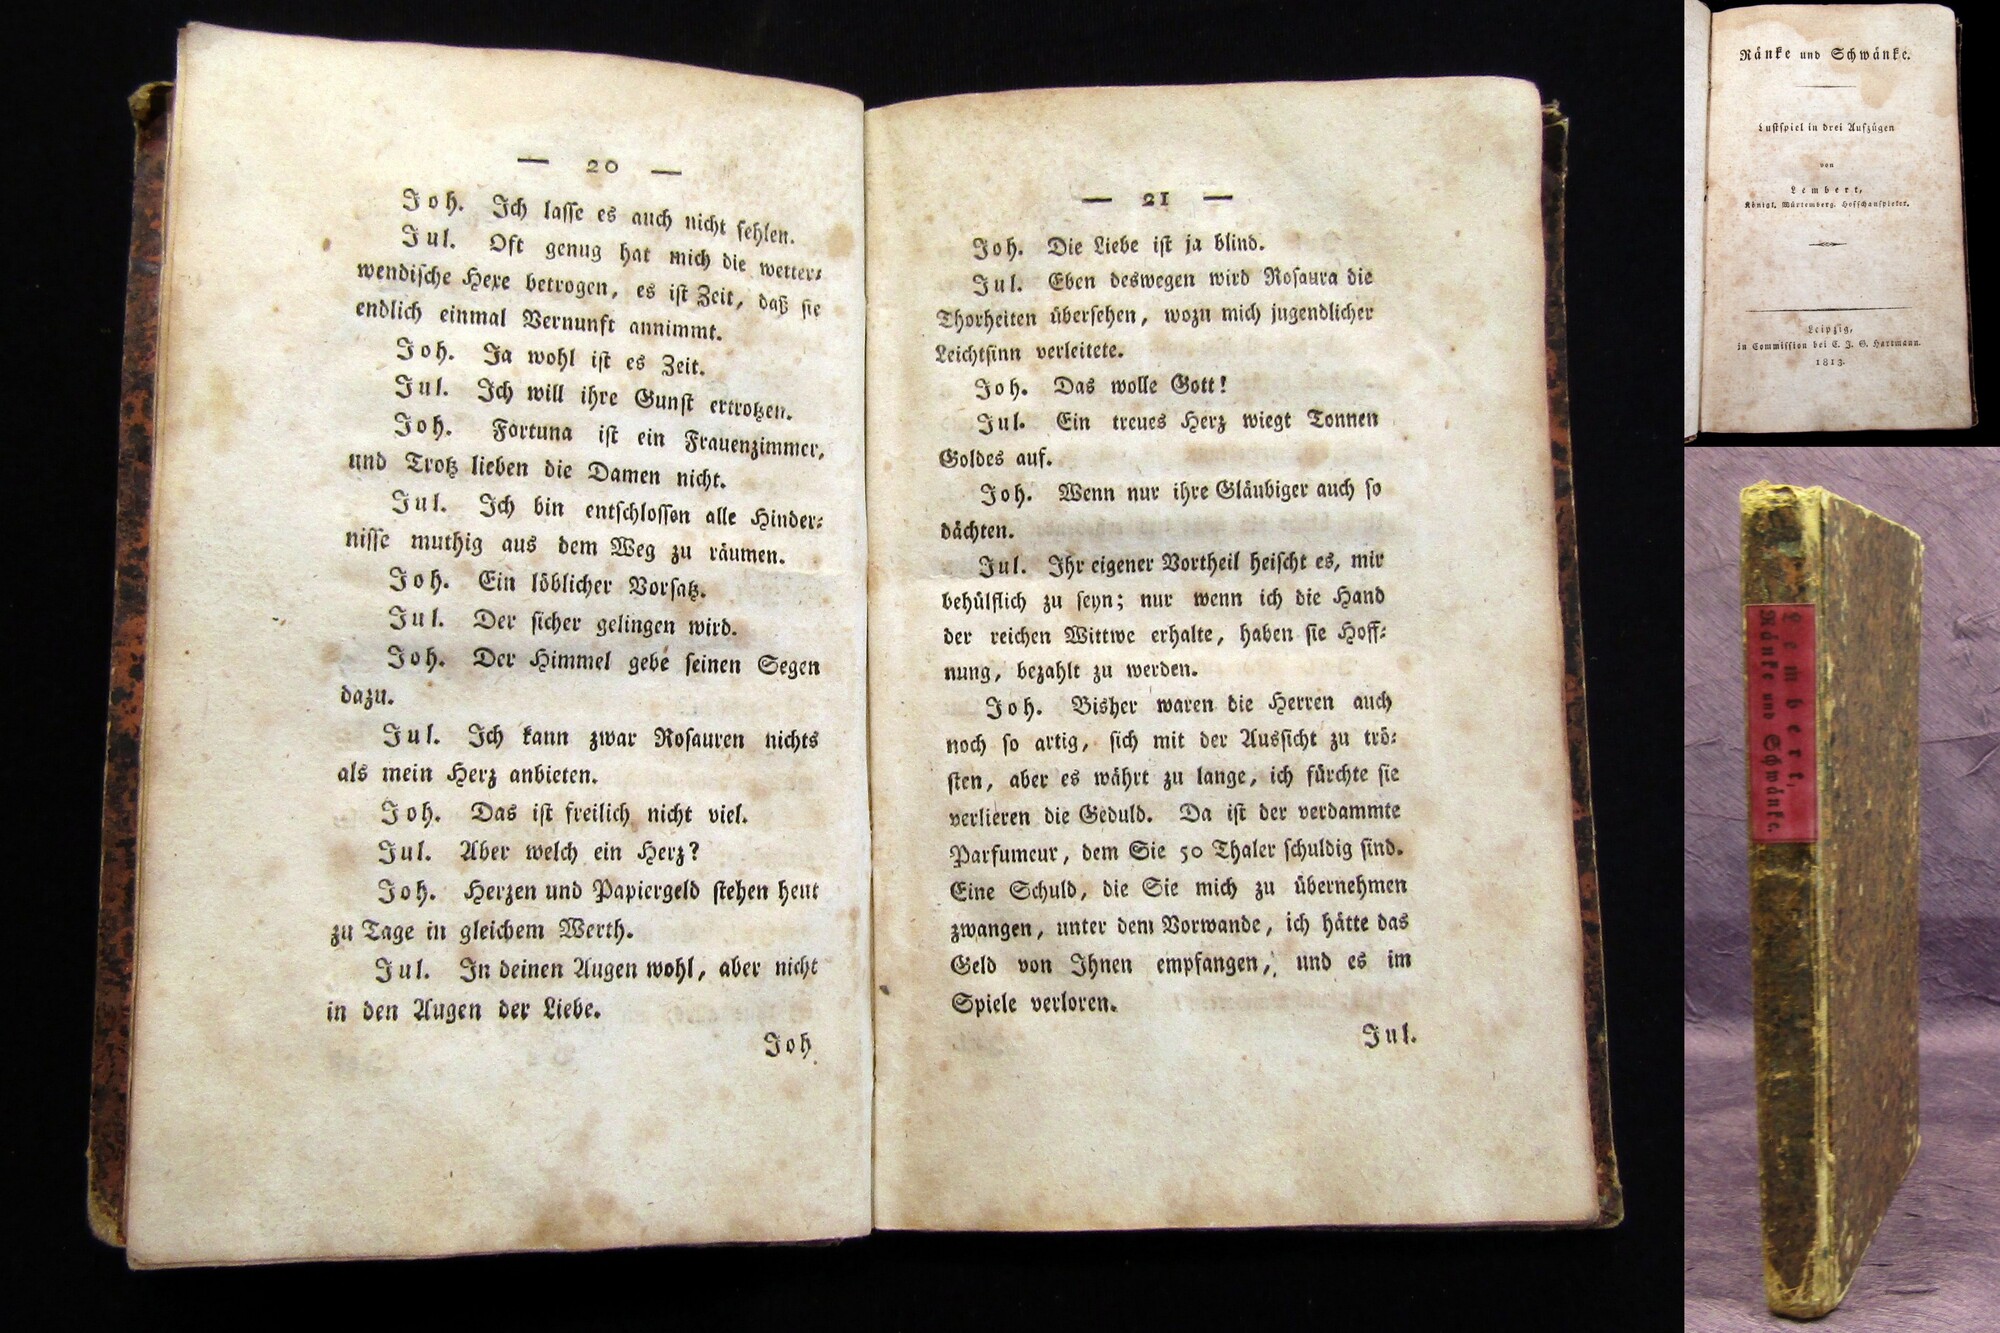 — 20 —
Joh. Ich lasse es auch nicht fehlen.
Jul. Oft genug hat mich die wetter-
wendische Hexe betrogen, es ist Zeit, daß sie
endlich einmal Vernunft annimmt.
Joh. Ja wohl ist es Zeit.
Jul. Ich will ihre Gunst ertrotzen.
Joh. Fortuna ist ein Frauenzimmer,
und Trotz lieben die Damen nicht.
Jul. Ich bin entschlossen alle Hinder-
nisse muthig aus dem Weg zu räumen.
Joh. Ein löblicher Vorsatz.
Jul. Der sicher gelingen wird.
Joh. Der Himmel gebe seinen Segen
dazu.
Jul. Ich kann zwar Rosauren nichts
als mein Herz anbieten.
Joh. Das ist freilich nicht viel.
Jul. Aber welch ein Herz?
Joh. Herzen und Papiergeld stehen heut
zu Tage in gleichem Werth.
Jul. In deinen Augen wohl, aber nicht
in den Augen der Liebe.
Joh.
— 21 —
Joh. Die Liebe ist ja blind.
Jul. Eben deswegen wird Rosaura die
Thorheiten übersehen, wozu mich jugendlicher
Leichtsinn verleitete.
Joh. Das wolle Gott!
Jul. Ein treues Herz wiegt Tonnen
Goldes auf.
Joh. Wenn nur ihre Gläubiger auch so
dächten.
Jul. Ihr eigener Vortheil heischt es, mir
behülflich zu seyn; nur wenn ich die Hand
der reichen Wittwe erhalte, haben sie Hoff-
nung, bezahlt zu werden.
Joh. Bisher waren die Herren auch
noch so artig, sich mit der Aussicht zu trö-
sten, aber es währt zu lange, ich fürchte sie
verlieren die Geduld. Da ist der verdammte
Parfumeur, dem Sie 50 Thaler schuldig sind.
Eine Schuld, die Sie mich zu übernehmen
zwangen, unter dem Vorwande, ich hätte das
Geld von Ihnen empfangen, und es im
Spiele verloren.
Jul.
Ränke und Schwänke.
Lustspiel in drei Aufzügen
von
Lembert,
Königl. Würtemberg. Hofschauspieler.
Leipzig,
in Commission bei C. J. G. Hartmann.
1813.
Lembert,
Ränke und Schwänke.